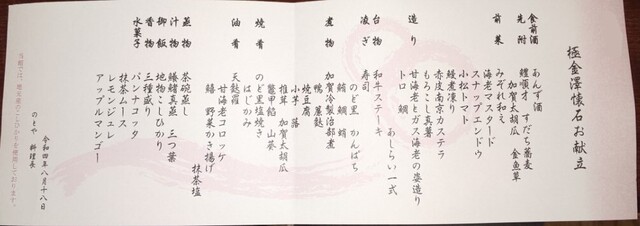 極金澤懐石お献立
食前酒 あんず酒
先附 鱧顎才 すだち蕎麦
加賀太胡瓜 金魚草
みぞれ和え
前菜 海老マスタード
スナップエンドウ
小松トマト
鰻煮凍り
赤皮南京カステラ
もろこし真薯
造り 甘海老とガス海老の姿造り
トロ 鯛
あしらい一式
台物 和牛ステーキ
凌ぎ 寿司
のど黒 かんぱち
鮪 鯛 蛸
煮物 加賀冷製治部煮
鴨 簾麩
焼豆腐
小芋 蕗
椎茸 加賀太胡瓜
鼈甲餡 山葵
焼肴 のど黒塩焼き
はじかみ
油肴 天麩羅
甘海老コロッケ
鱚 野菜かき揚げ
抹茶塩
蒸物 茶碗蒸し
汁物 鰻鱚真蒸 三つ葉
御飯 地物こしひかり
香物 三種盛り
水菓子 パンナコッタ
抹茶ムース
レモンジュレ
アップルマンゴー
令和四年八月十八日
のとや 料理長
当館では、地元産のこしひかりを使用しております。